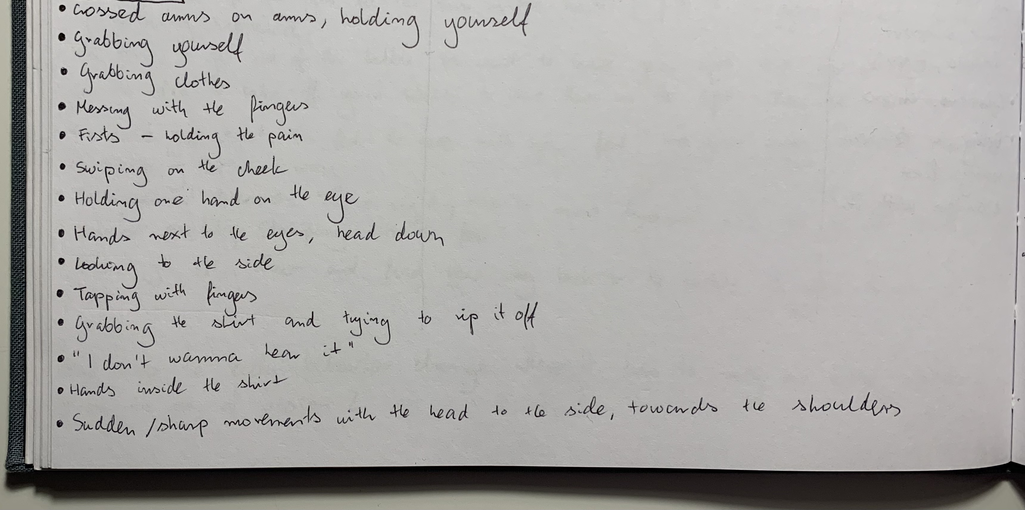 • Crossed arms on arms, holding yourself
• Grabbing yourself
• Grabbing clothes
• Messing with the fingers
• Fists – holding the pain
• Swiping on the cheek
• Holding one hand on the eye
• Hands next to the eyes, head down
• Looking to the side
• Tapping with fingers
• Grabbing the shirt and trying to rip it off
• "I don't wanna hear it"
• Hands inside the shirt
• Sudden/sharp movements with the head to the side, towards the shoulders